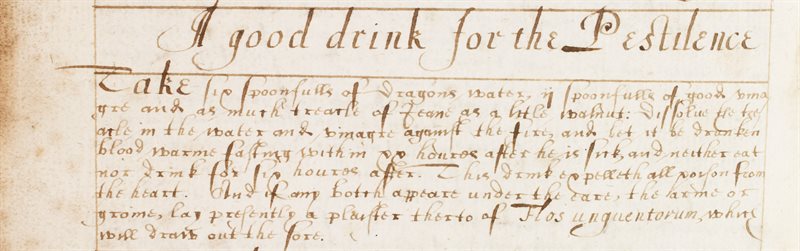 A good drink for the Pestilence
Take six spoonfulls of Dragons water, ij spoonfulls of good vina
gre and as much treacle of Jeane as a litle walnut: Disolve the tre
acle in the water and vinagre against the fire, and let it be drunken
blood warme fasting within xx houres after he is sick, and neither eat
nor drink for six houres after. This drink expelleth all poison from
the heart. And if any botch appeare under the eare, the arme or
groine, lay presently a plaister therto of Flos unguentorum, which
will draw out the sore.